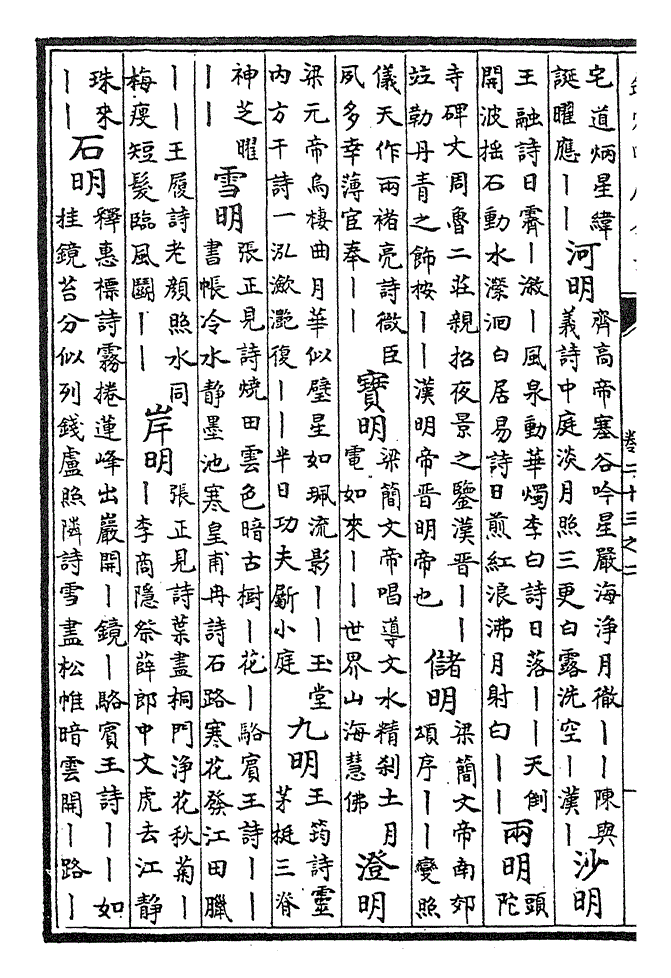 卷二十三之二
宅道炳星緯
誕曜應——
河明
齊高帝塞谷吟星嚴海淨月徹——陳與
義詩中庭淡月照三更白露洗空—漢—
沙明
王融詩日霽—溆—風泉動華燭李白詩日落——天倒
開波搖石動水瀠洄白居易詩日煎紅浪沸月射白——
兩明
頭
陀
寺碑文周魯二莊親招夜景之鑒漢晉——
竝勒丹青之飾按——漢明帝晉明帝也
儲明
梁簡文帝南郊
頌序——變照
儀天作兩褚亮詩微臣
夙多幸薄宦奉——
寶明
梁簡文帝唱導文水精刹土月
電如來——世界山海慧佛
澄明
梁元帝烏棲曲月華似璧星如珮流影——玉堂
内方干詩一泓瀲灩復——半日功夫劚小庭
九明
王筠詩靈
茅挺三脊
神芝曜
——
雪明
張正見詩燒田雲色暗古樹—花—駱賓王詩——
書帳冷水靜墨池寒皇甫冉詩石路寒花發江田臘
——王履詩老顔照水同
梅瘦短髮臨風鬭——
岸明
張正見詩葉盡桐門淨花秋菊—
—李商隱祭薛郎中文虎去江靜
珠來
——
石明
釋惠標詩霧捲蓮峰出巖開—鏡—駱賓王詩——如
挂鏡苔分似列錢盧照隣詩雪盡松帷暗雲開—路—